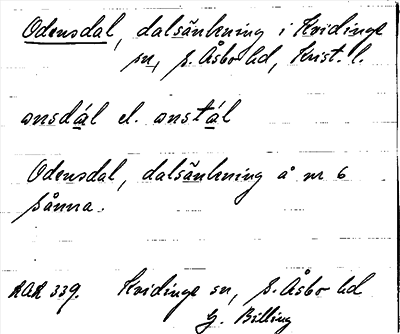 Odensdal, dalsänkning i Kvidinge
sn, S. Åsbo hd, Krist. l.
onsdál el. onstál
Odensdal, dalsänkning å nr 6
Sånna.
RAÄ 339. Kvidinge sn, S. Åsbo hd
G. Billing